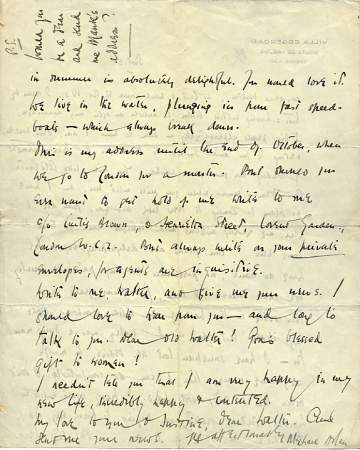 P.S.
Would you
be a dear
and send
me
address?
in summer is absolutely delightful. You would love it.
We live in the water, plunging in from fast speed-
boats – which always break down.
This is my address until the end of October, when
we go to London for a month. But should you
ever want to get hold of me write to me
c/o Curtis Brown, 6 Henrietta Street, Covent Garden,
London W.C.2. But always write on your private
envelopes, for agents are inquisitive.
Write to me, Walter, and give me your news. I
should love to hear from you – and long to
talk to you. Dear old Walter! God's blessed
gift to women!
I needn't tell you that I am very happy in my
new life, incredibly happy & contented.
My love to you & dear Walter. And
send me your news. Yr affectionate
Michael Arlen